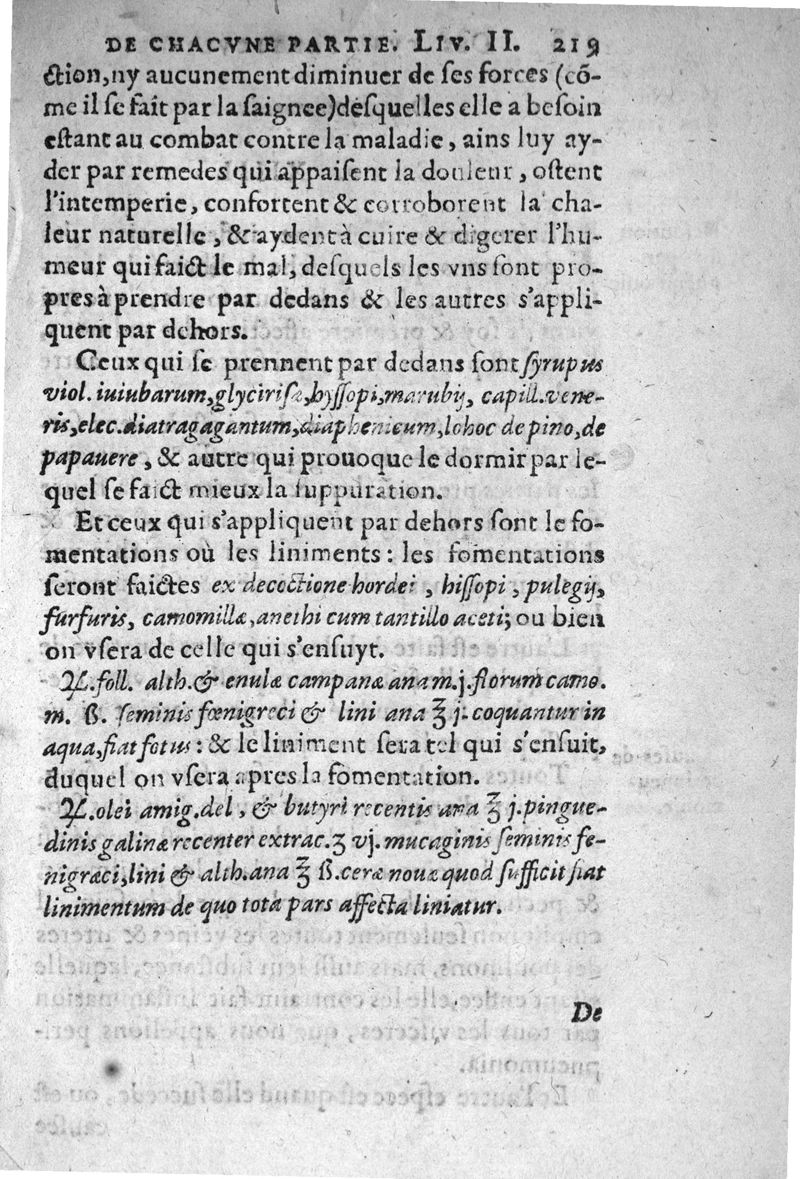 DE CHACVNE PARTIE. LIV. II. 219
ction, ny aucunement diminuer de ses forces (cõ-
me il se fait par la saignee) desquelles elle a besoin
estant au combat contre la maladie, ains luy ay-
der par remedes qui appaisent la douleur, ostent
l'intemperie, confortent & corroborent la cha-
leur naturelle, & aydent à cuire & digerer l'hu-
meur qui faict le mal, desquels les vns sont pro-
pres à prendre par dedans & les autres s'appli-
quent par dehors.
Ceux qui se prennent par dedans sont syrupus
viol. iuiubarum, glycirisæ, hyssopi, marubij, capill. vene-
ris, elec. diatragagantum, diaphenicum, lohoc de pino, de
papauere, & autre qui prouoque le dormir par le-
quel se faict mieux la suppuration.
Et ceux qui s'appliquent par dehors sont le fo-
mentations où les liniments: les fomentations
seront faictes ex decoctione hordei, hissopi, pulegij,
furfuris, camomillæ, anethi cum tantillo aceti; ou bien
on vsera de celle qui s'ensuyt.
℞. foll. alth. & enulæ campanæ ana m. j. florum camo.
m. ß. seminis fœnigreci & lini ana ℥ j. coquantur in
aqua, fiat fotus: & le liniment sera tel qui s'ensuit,
duquel on vsera apres la fomentation.
℞. olei amig. del, & butyri recentis ana ℥ j. pingue-
dinis galinæ recenter extrac. ʒ vj. mucaginis seminis fe-
nigræci, lini & alth. ana ℥ ß. ceræ nouæ quod sufficit fiat
linimentum de quo tota pars affecta liniatur.
De